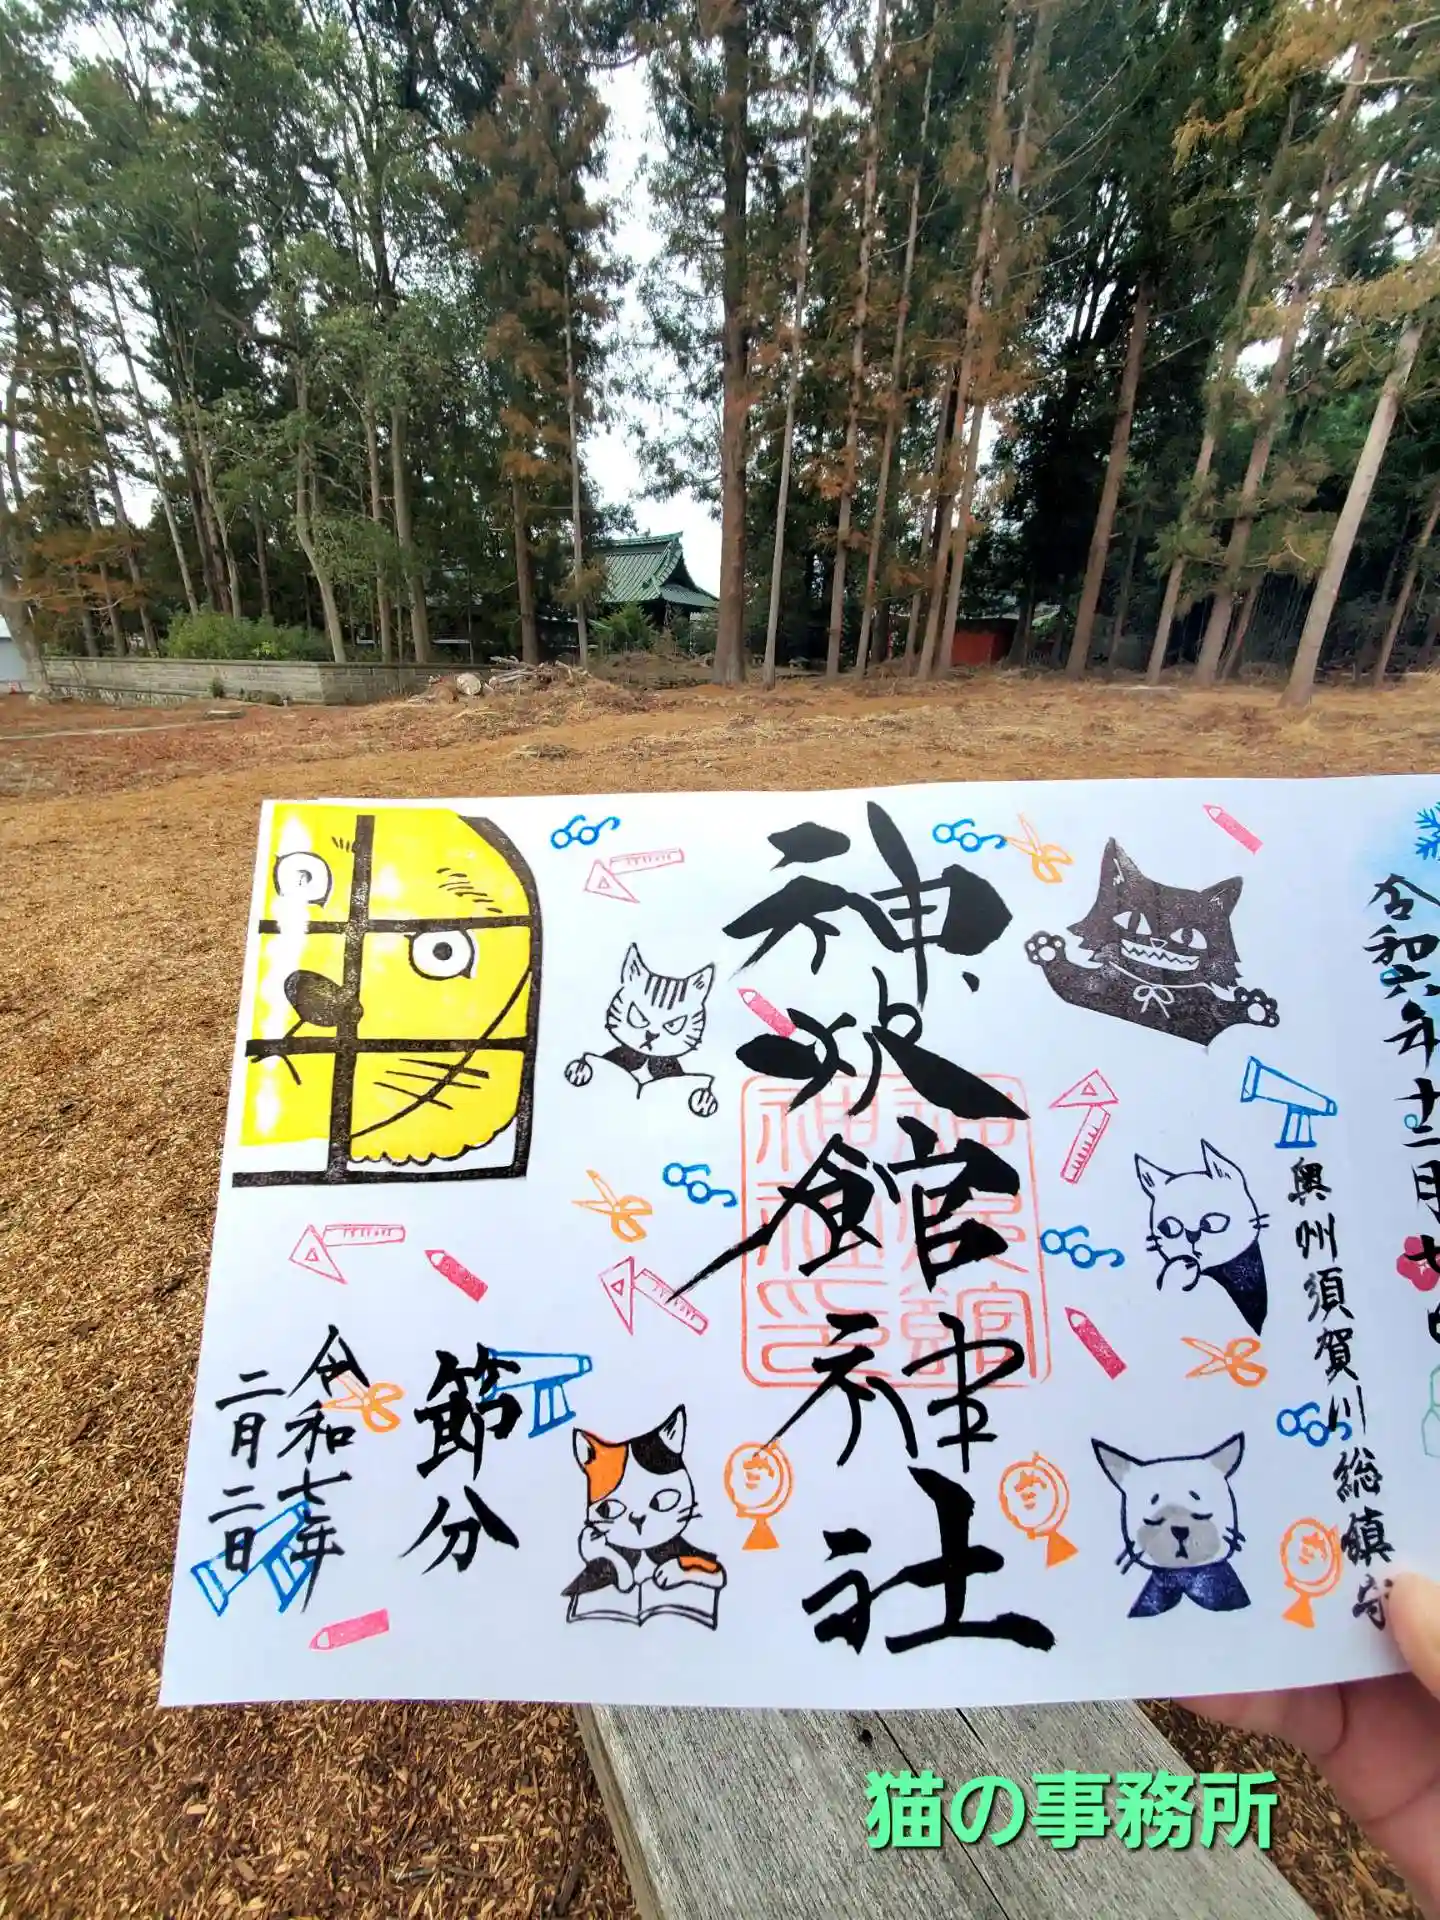 令和六年十二月七日
奥州須賀川総鎮守
神炊館神社
節分
令和七年
二月二日
猫の事務所